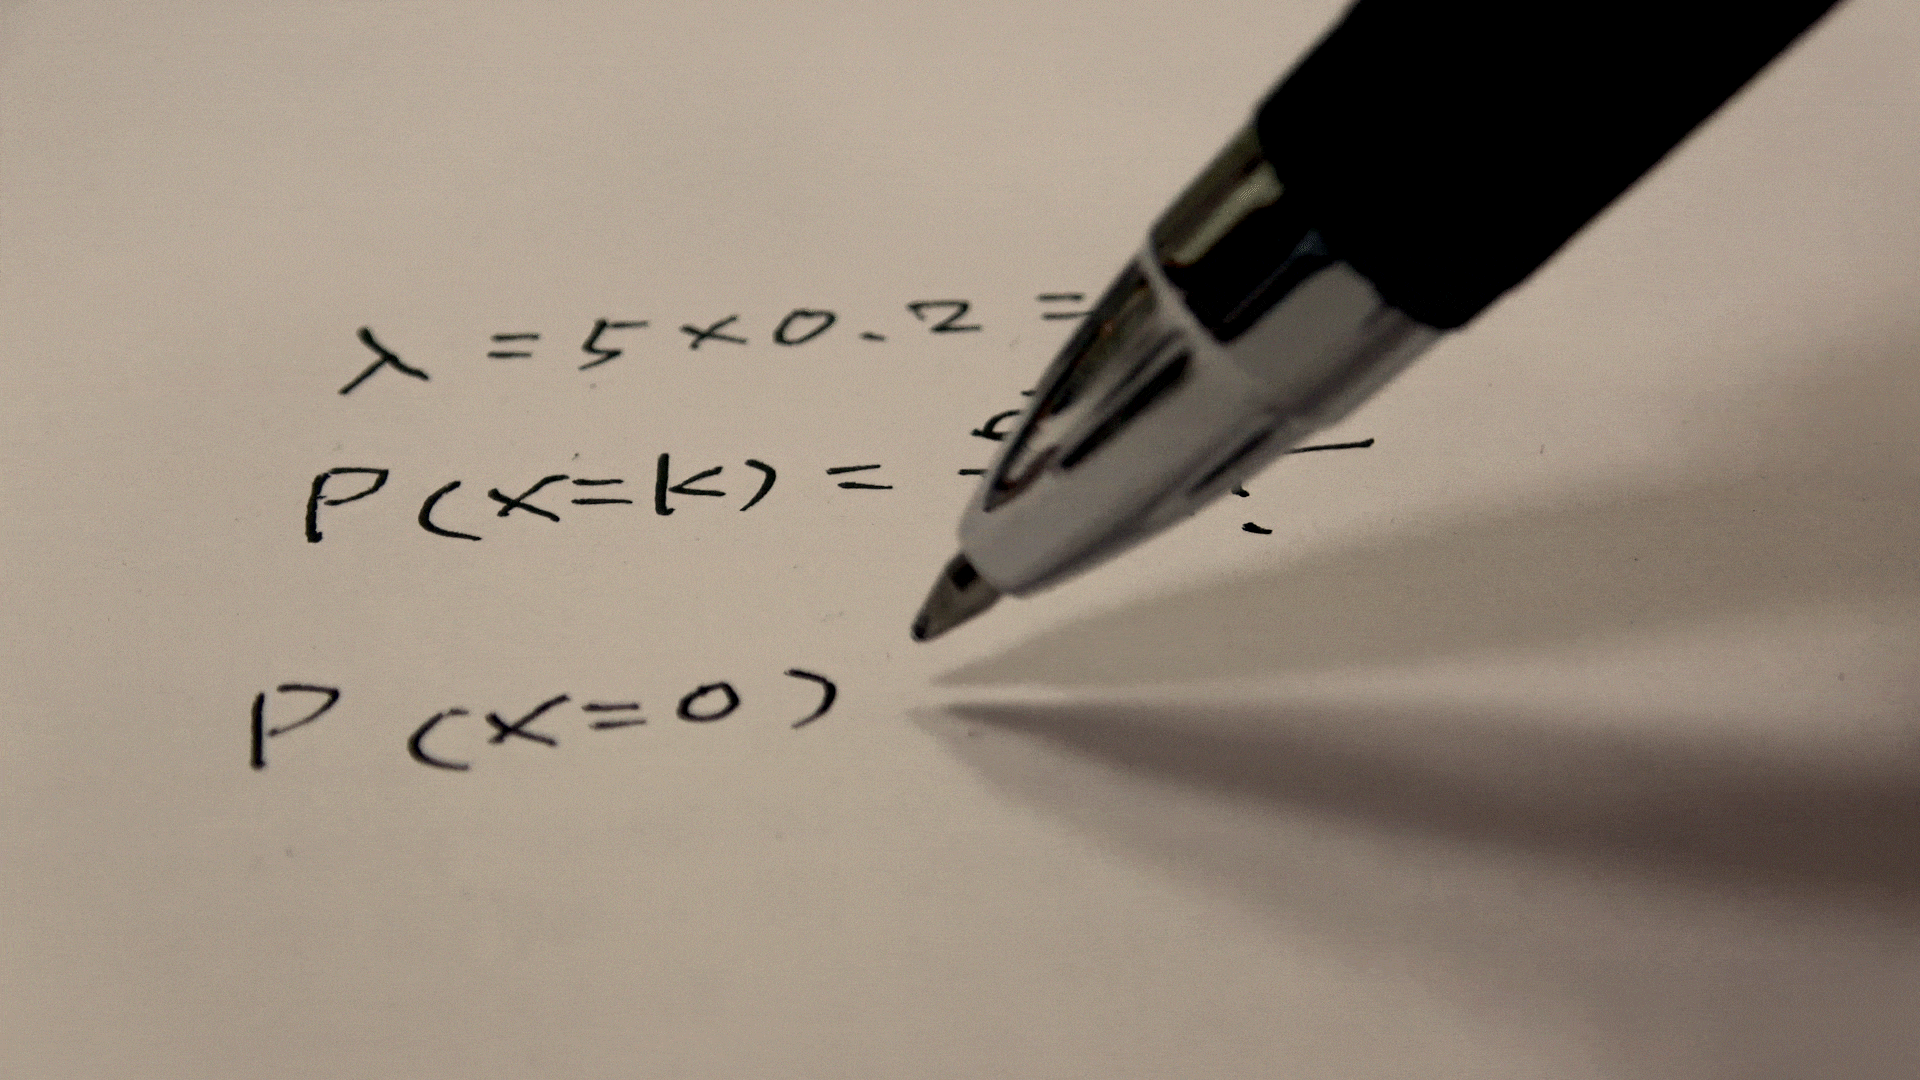 λ = 5 × 0.2 =
P(x=k) =
P(x=0)